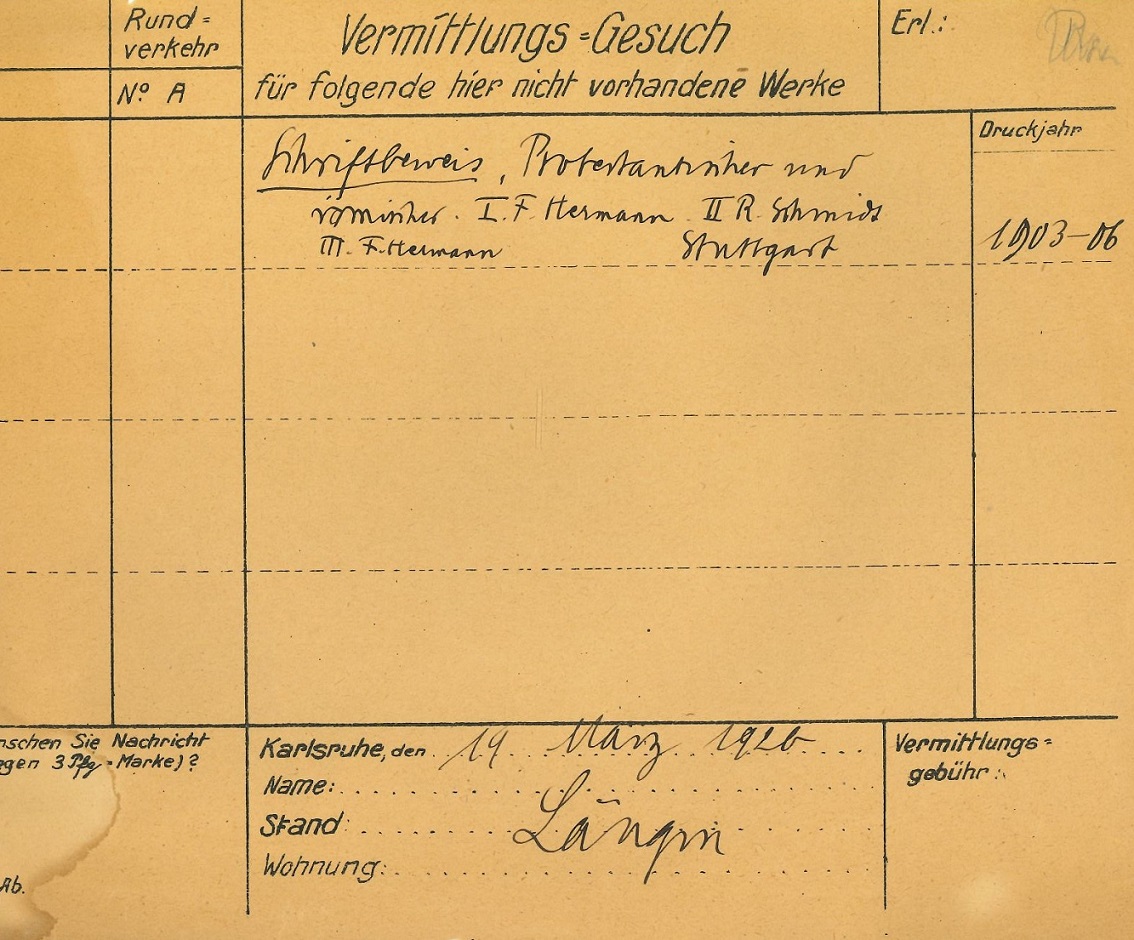 Rund=
verkehr
Nº A
Vermittlungs=Gesuch
für folgende hier nicht vorhandene Werke
Erl.:
Druckjahr
Schriftbeweis, Protestantischer und
römischer. I. F. Hermann II R. Schmidt
III. F. Hermann Stuttgart
1903-06
nschen Sie Nachricht
gen 3 Pfg=Marke)?
Ab.
Karlsruhe, den 19 März 1926
Name:
Stand:
Längin
Wohnung:
Vermittlungs=
gebühr: